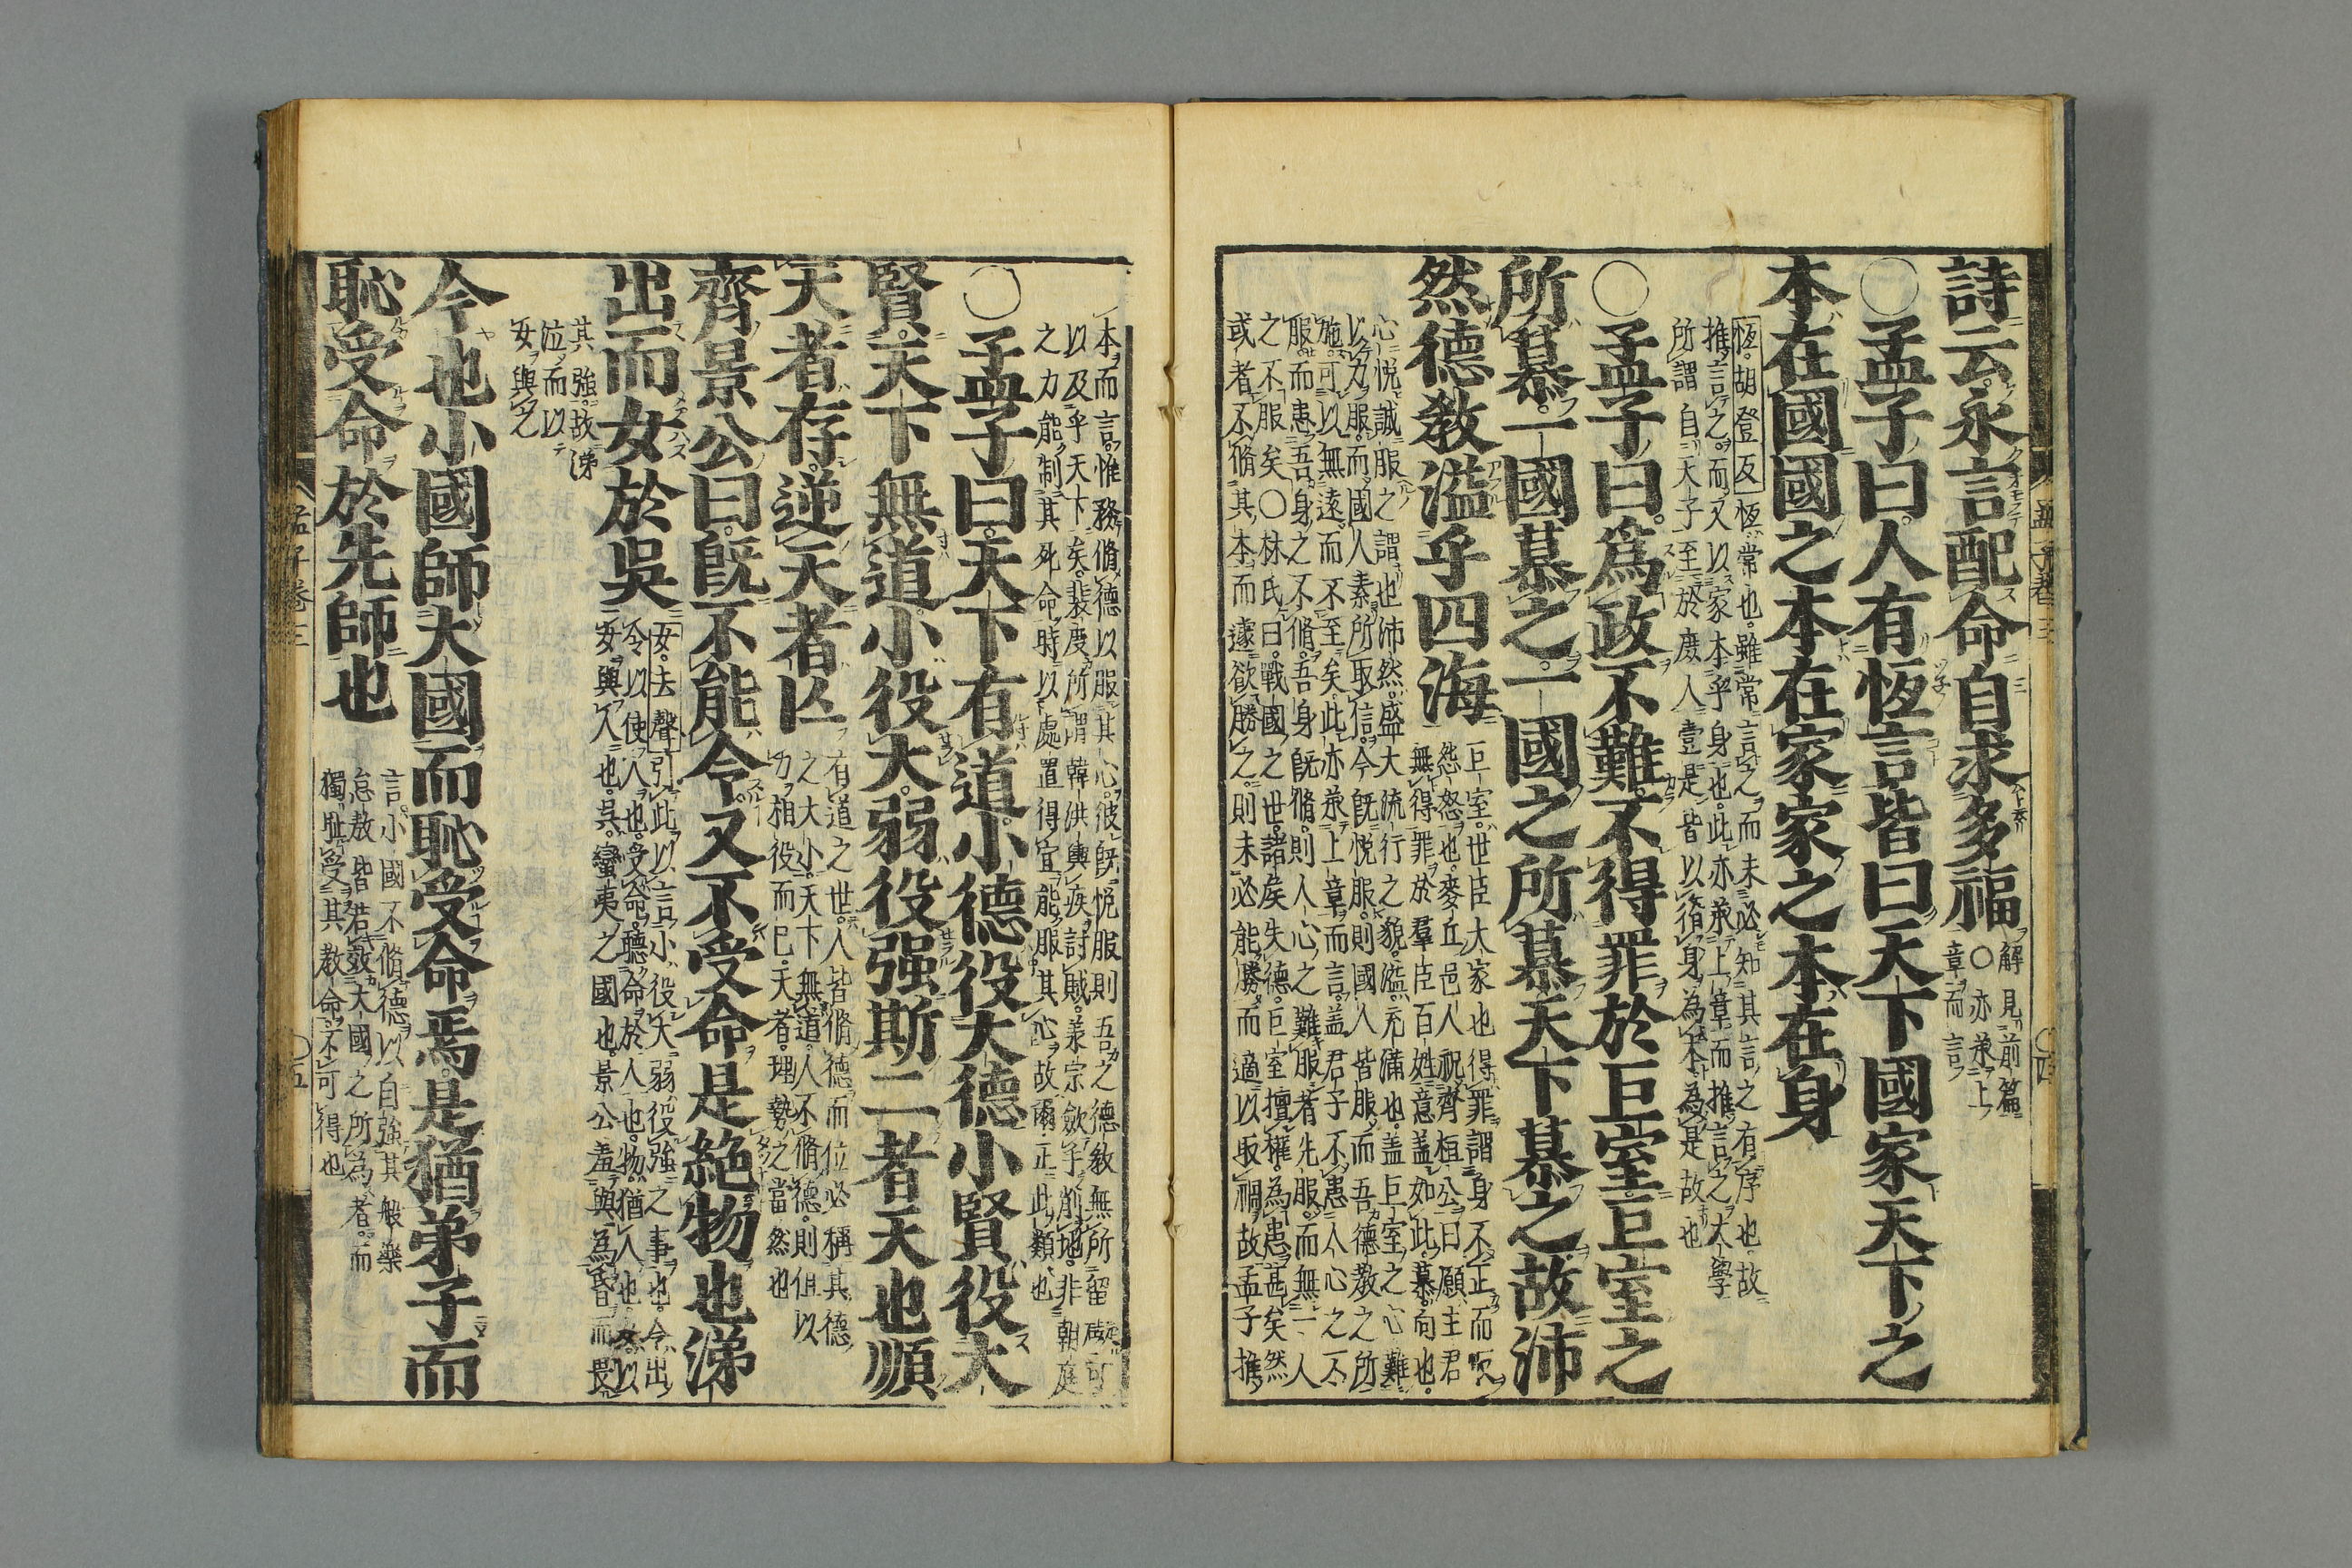 詩云永言配命自求多福
解見前篇
○亦承上
章而言
○孟子曰人有恆言皆曰天下國家天下之
本在國國之本在家家之本在身
恆胡登反恆常也雖常言之而未必知其言之有序也故
推言之而又以家本乎身也此亦承上章而推言之大學
所謂自天子至於庶人壹是皆以脩身為本為是故也
○孟子曰爲政不難不得罪於巨室巨室之
所慕一國慕之一國之所慕天下慕之故沛
然德敎溢乎四海
巨室世臣大家也得罪謂身不正而取
怨怒也麥丘邑人祝齊桓公曰願主君
無得罪於羣臣百姓意盖如此慕向也
心悅誠服之謂也沛然盛大流行之貌溢充滿也盖巨室之心難
以力服而國人素所取信今旣悅服則國人皆服而吾德教之所
施可以無遠而不至矣此亦承上章而言盖君子不患人心之不
服而患吾身之不脩吾身旣脩則人心之難服者先服而無一人
之不服矣○林氏曰戰國之世諸矦失德巨室擅權為患甚矣然
或者不脩其本而遽欲勝之則未必能勝而適以取禍故孟子推
孟子卷三
○四
本而言惟務脩德以服其心彼旣悅服則吾之德敎無所留礙可
以及乎天下矣裴度所謂韓洪輿疾討賊承宗歛手削地非朝庭
之力能制其死命時以處置得宜能服其心故爾正此類也
○孟子曰天下有道小德役大德小賢役大
賢天下無道小役大弱役强斯二者天也順
天者存逆天者亾
有道之世人皆脩德而位必稱其德
之大小天下無道人不脩德則但以
力相役而已天者理勢之當然也
齊景公曰旣不能令又不受命是絶物也涕
出而女於吳
女去聲引此以言小役大弱役強之事也令出
令以使人也受命聽命於人也物猶人也女以
女與人也吳蠻夷之國也景公羞與為昏而畏
其強故涕
泣而以
女與之
今也小國師大國而恥受命焉是猶弟子而
恥受命於先師也
言小國不脩德以自強其般樂
怠敖皆若效大國之所為者而
獨耻受其教命不可得也
孟子卷三
○五